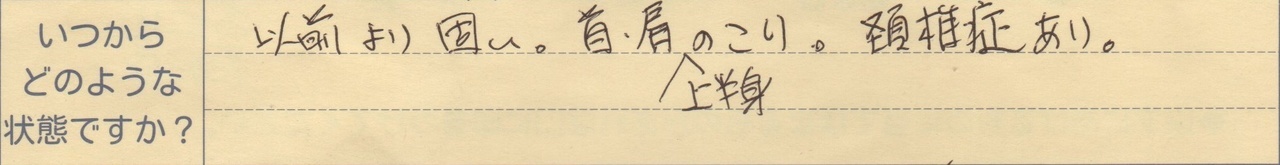 いつから
どのような
状態ですか？
以前より固い。首・肩のこり。頚椎症あり。
上半身